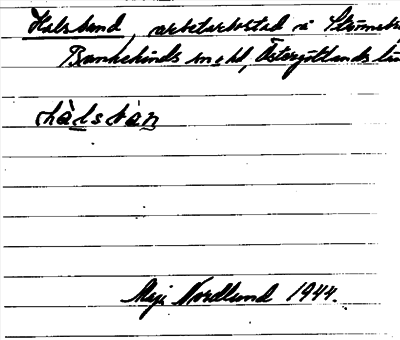 Halsband, arbetarbostad i
Bankekinds sn o hd, Östergötlands län
Maj Nordlund 1944.